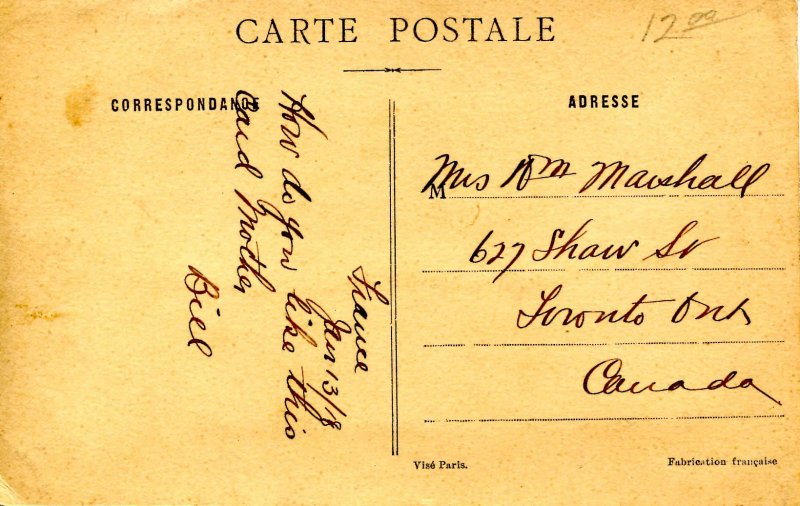 CARTE POSTALE
12.00
CORRESPONDANCE
France
Jan 13/18
How do you like this
Card Mother
Bill
ADRESSE
M
Mrs Wm Marshall
627 Shaw St
Toronto Ont
Canada
Visé Paris.
Fabrication française